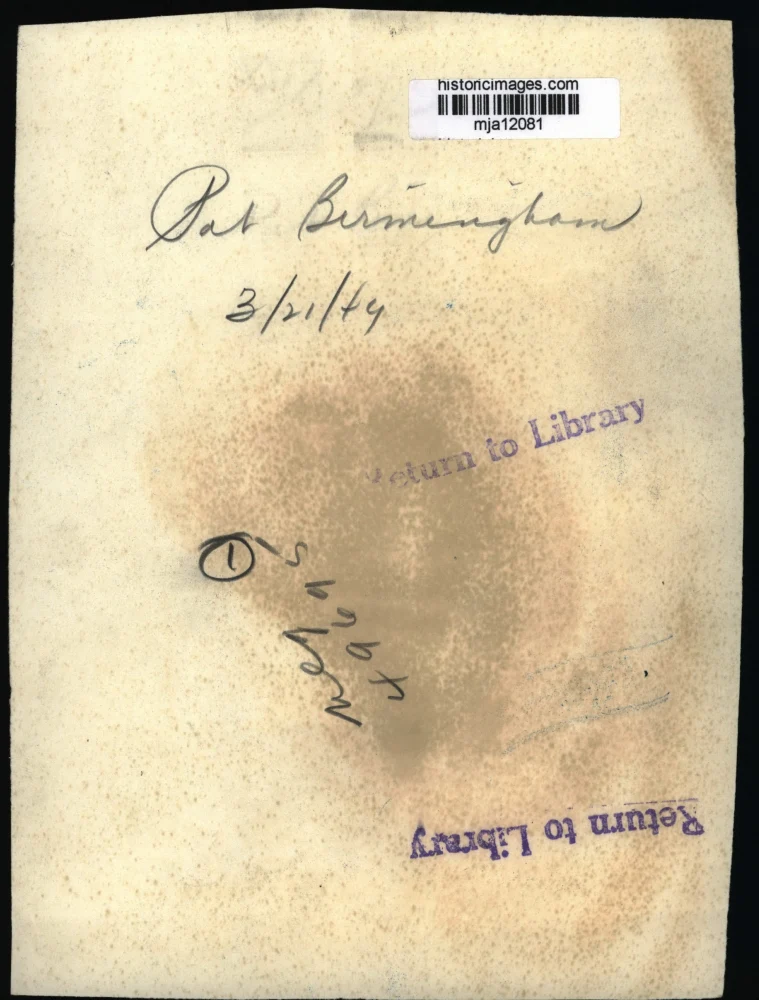 historicimages.com
mja12081
Pat Birmingham
3/21/49
Return to Library
1
Return to Library